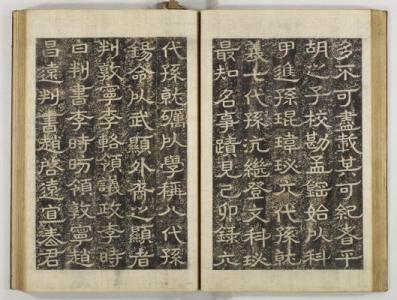 多不可盡載其可紀者平
胡之子校勘孟始以科
甲進孫琨瑋珌六代孫就
義七代孫沉繼登文科珌
最知名事蹟見己卯錄六
代孫就礪以學稱八代孫
錫命以武顯外裔之顯者
判敦寧李輅領議政李時
白判書李時昉領敦寧趙
昌遠判書趙啓遠宜春君